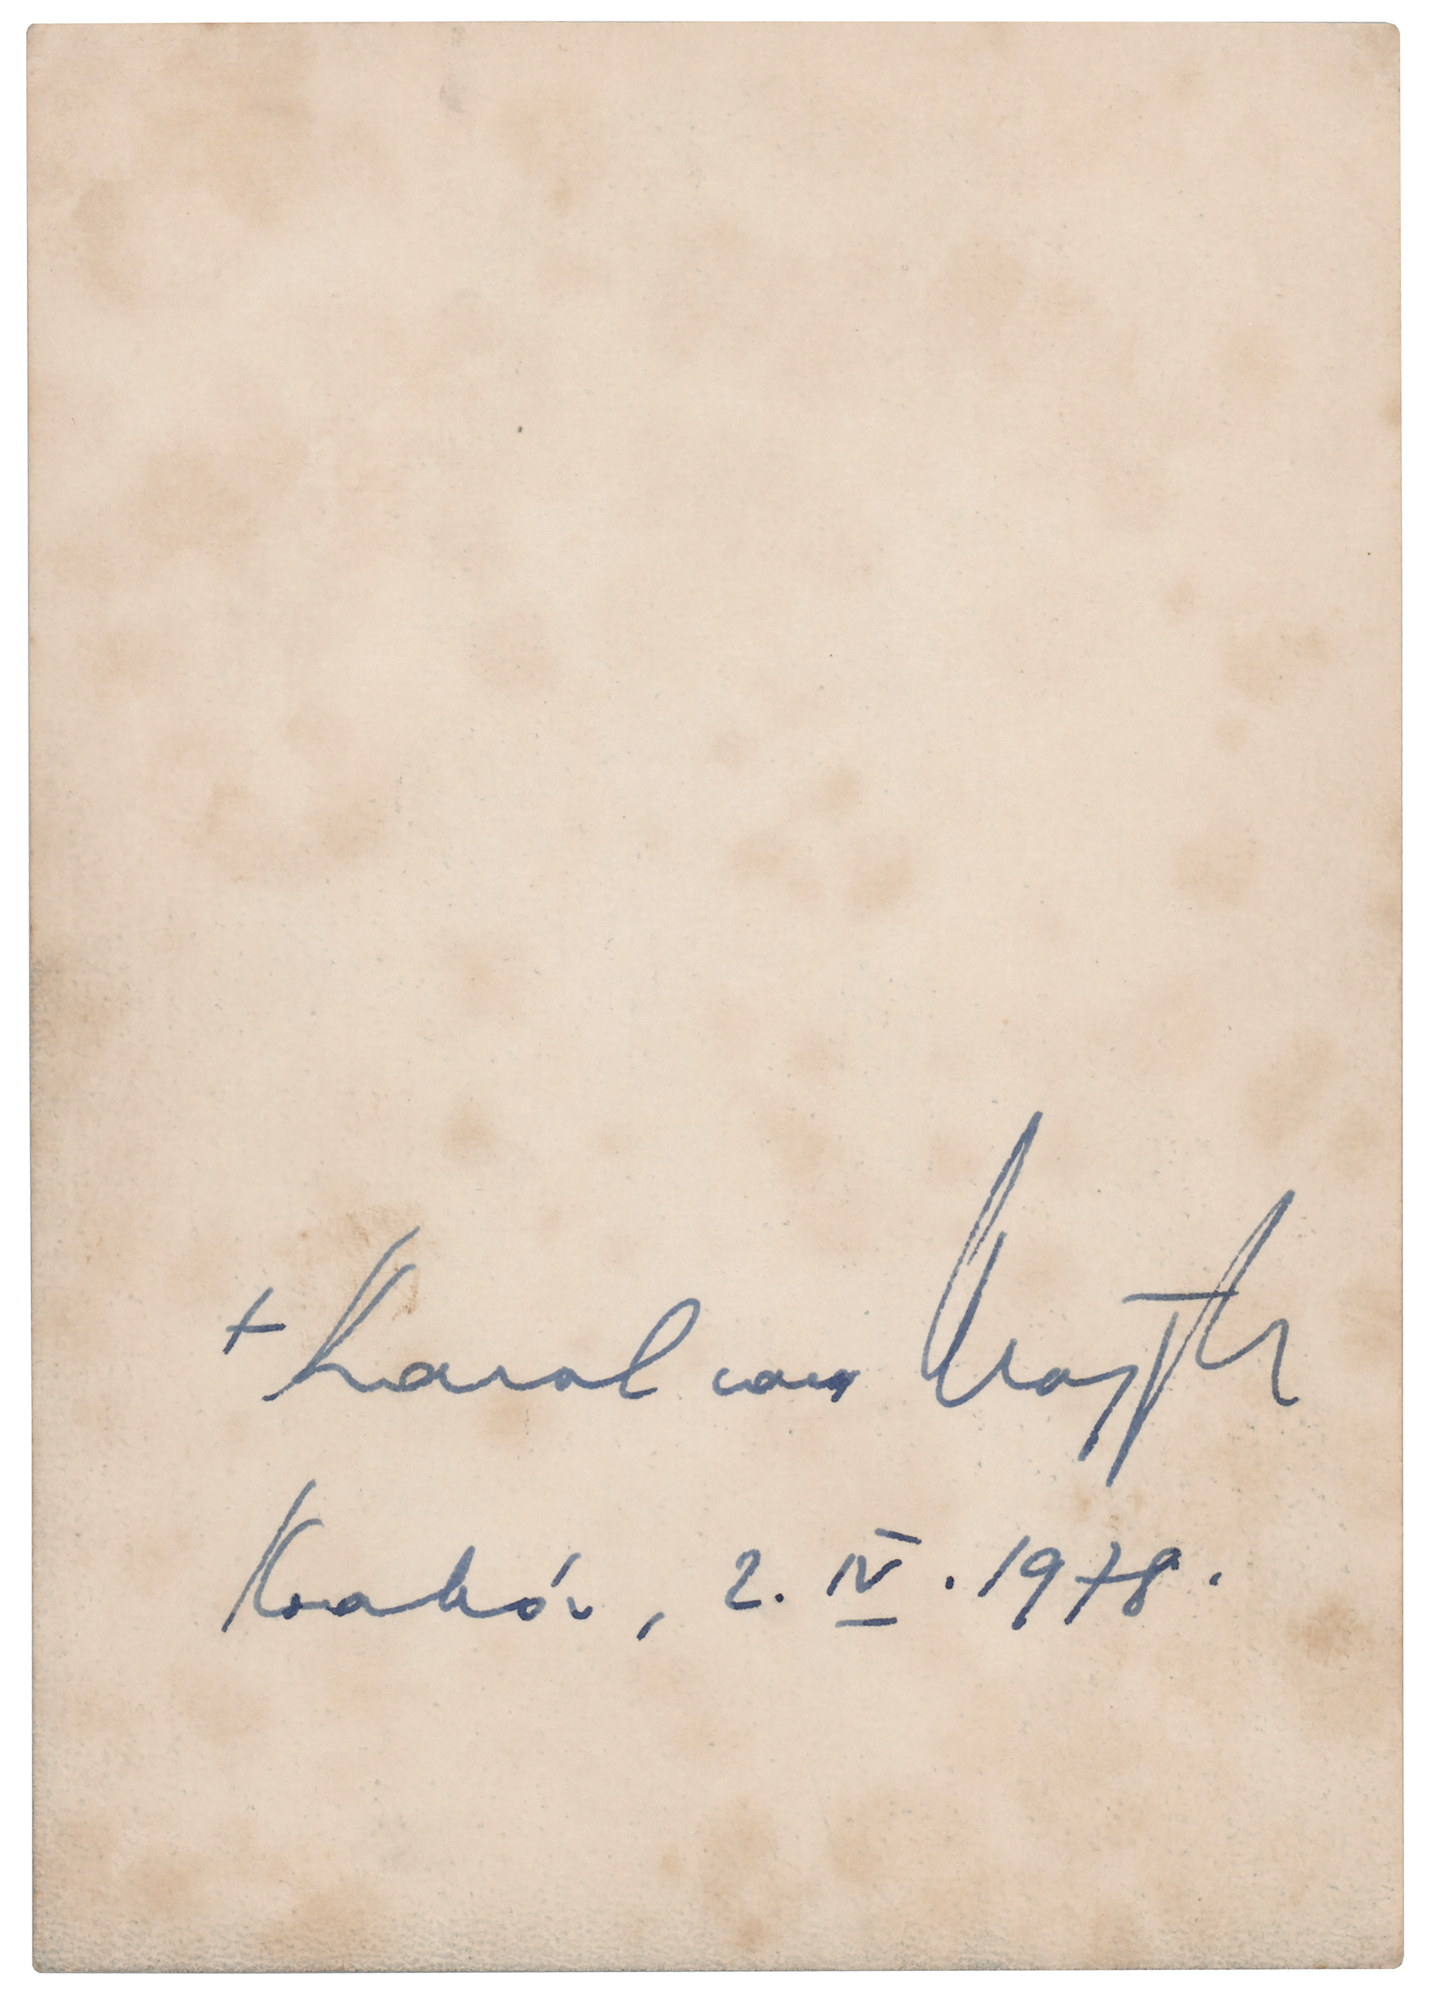 + Karol card Wojtyła
Kraków, 2. IV. 1978.